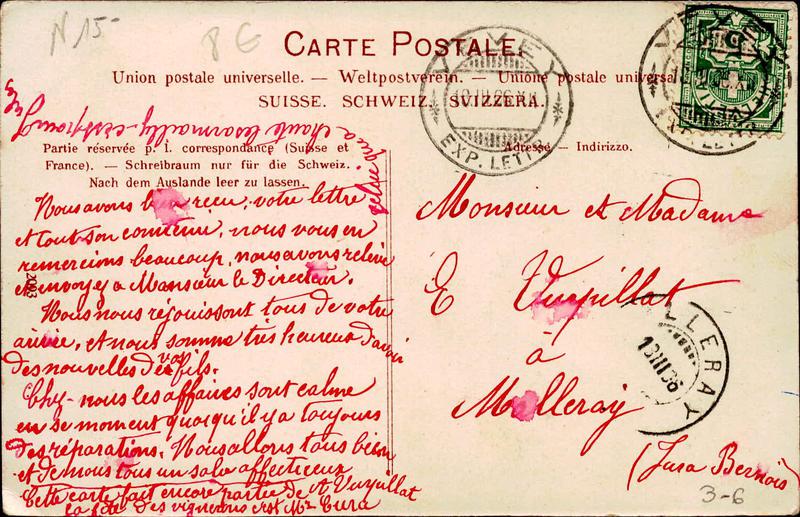 N 15-
8 G
CARTE POSTALE.
Union postale universelle. — Weltpostverein. — Unione postale universal
SUISSE. SCHWEIZ. SVIZZERA.
VEVEY
10.III.06.XII
EXP. LETT.
VEVEY
10.III.06.XII
EXP. LETT.
HELVETIA
Partie réservée p. l. correspondance (Suisse et
France). — Schreibraum nur für die Schweiz.
Nach dem Auslande leer zu lassen.
Adresse — Indirizzo.
celui qui a chanté
Nous avons bien reçu, votre lettre
et tout son contenu, nous vous en
remercions beaucoup, nous avons relevé
et envoyé a Monsieur le Directeur.
Nous nous réjouissont tous de votre
arrivée, et nous somme très heureux d'avoir
des nouvelles de vos fils.
Chez nous les affaires sont calme
en se moment quoiqu'il y a toujours
des réparations. Nous allons tous bien
et de nous tous un salu affectieux
Cette carte fait encore partie de A Vuypillat
la fête des vignerons est Mr Cura
2003
Monsieur et Madame
E Vuypillat
à
Malleray
(Jura Bernois)
MALLERAY
13 III 06
3-6